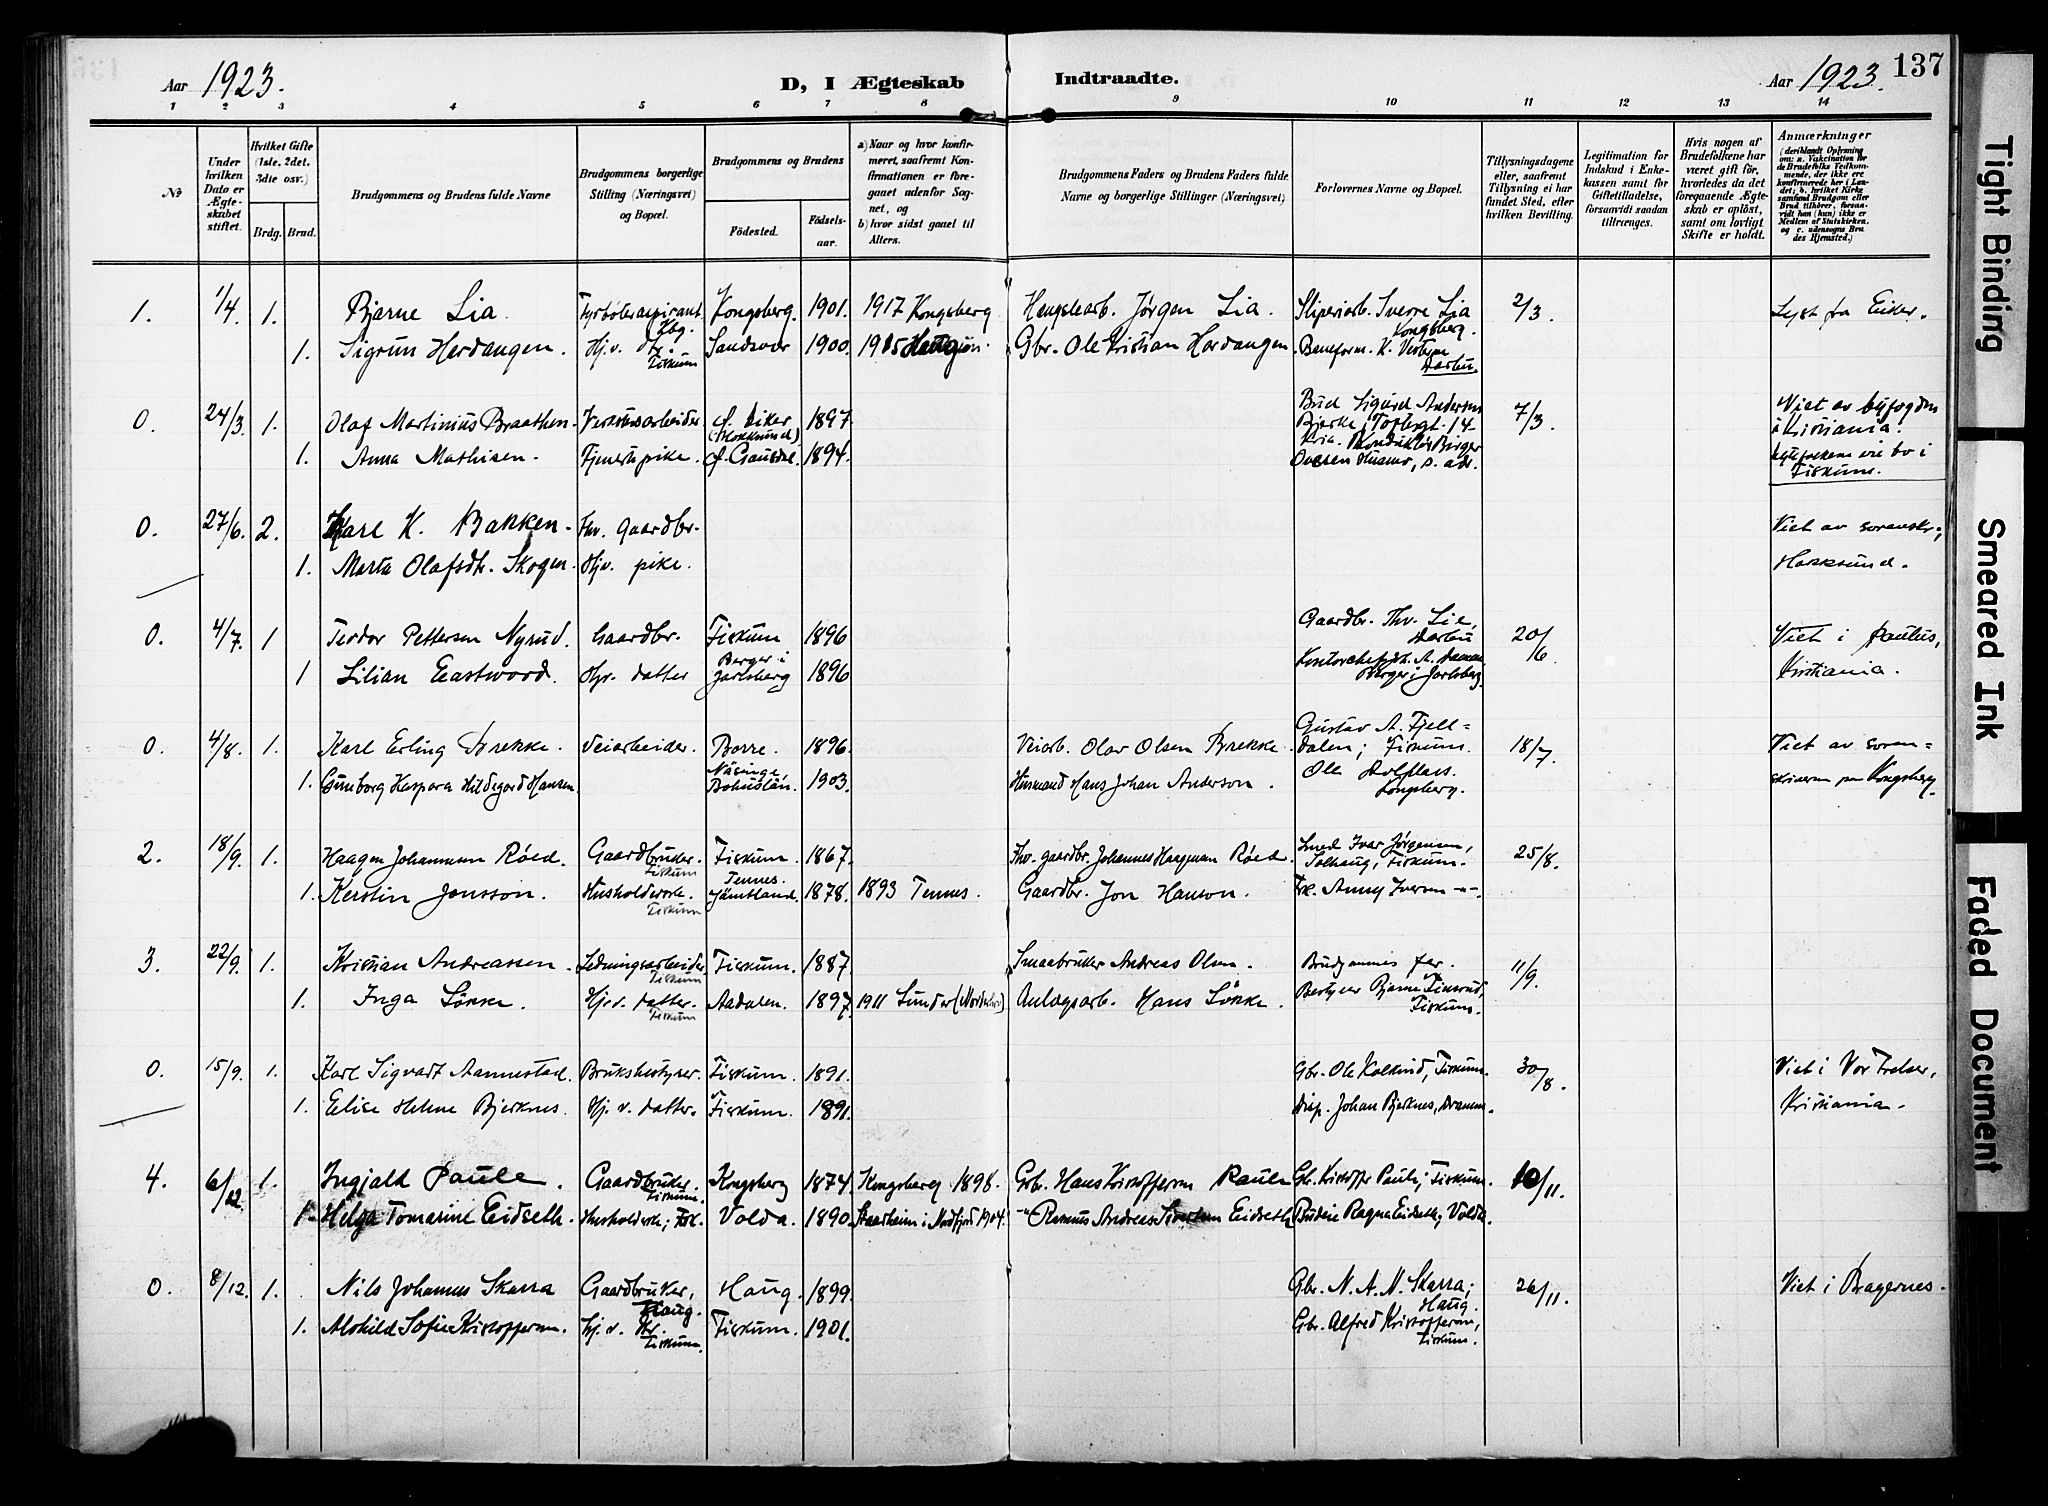 137
Aar 1923.
D, I Ægteskab
Indtraadte.
Aar 1923.
1 2 3 4 5 6 7 8 9 10 11 12 13 14
No
Under hvilken Dato er Ægteskabet stiftet.
Hvilket Gifte (1ste, 2det, 3die osv.)
Brdg. Brud.
Brudgommens og Brudens fulde Navne
Brudgommens borgerlige Stilling (Næringsvei) og Bopæl.
Brudgommens og Brudens
Födested.
Födselsaar.
a) Naar og hvor konfirmeret, saafremt Konfirmationen er foregaaet udenfor Sognet, og
b) hvor sidst gaaet til Alters.
Brudgommens Faders og Brudens Faders fulde Navne og borgerlige Stillinger (Næringsvei)
Forlovernes Navne og Bopæl.
Tillysningsdagene eller, saafremt Tillysning ei har fundet Sted, efter hvilken Bevilling.
Legitimation for Indskud i Enkekassen samt for Giftetilladelse, forsaavidt saadan tiltrænges.
Hvis nogen af Brudefolkene har været gift för, hvorledes da det foregaaende Ægteskab er oplöst, samt om lovligt Skifte er holdt.
Anmærkninger
(deriblandt Oplysning om: a. Vakcination for de Brudefolks Vedkommende, der ikke ere konfirmerede her i Landet; b. hvilket Kirkesamfund Brudgom eller Brud tilhörer, forsaavidt han (hun) ikke er Medlem af Statskirken, og c. udensogns Brudes Hjemsted.)
1. 1/4 1. Bjarne Lia Fyrbøteraspirant Kbg. Kongsberg. 1901. 1917 Kongsberg Jørgen Lia. Sliperiarb. Sverre Lia Kongsberg. 2/3. Lyst fra Eiker.
1. Sigrun Hordangen. Hj.v. dtr. Fiskum Sandsvær 1900. 1915 Gbr. Ole Kristian Hordangen. Baneform. K. Darbu.
0. 24/3. 1. Olaf Martinius Braathen Verksarbeider Ø. Eiker (Hokksund) 1897. Bud Sigurd Andersen Bjerke, Toftesgt. 14 Kria. 7/3. Viet av byfogden i Kristiania.
1. Anna Mathisen. Tjenestepike. Ø. Gausdal. 1894. Konduktør Birger Ovesen Husmo, s. adr. Egtefolkene vil bo i Fiskum.
0. 27/6. 2. Karl K. Bakken. Fhv. Gaardbr. Viet av sorenskr.,
1. Marta Olafsdtr. Skogen. Hjv. pike. Hokksund.
0. 4/7. 1 Teodor Pettersen Nyrud. Gaardbr. Fiskum 1896 Gaardbr. Thv. Lie, Darbu 20/6. Viet i Paulus,
1 Lilian Eastwood. datter Berger i Jarlsberg 1896 Berger i Jarlsberg. Kristiania.
0. 4/8. 1. Karl Erling Brekke. Veiarbeider. Borre. 1896. Veiarb. Olav Olsen Brekke Gustav A. Fjelldalen; Fiskum. 18/7. Viet av soren-
1. Gunborg Kaspara Hildegard Hansen Näsinge, Bohuslän. 1903. Husmand Hans Johan Anderson. Kongsberg. skriveren paa Kongsberg.
2. 18/9. 1. Haagen Johannessen Røed. Gaardbruker. Fiskum Fiskum. 1867. Fhv. gaardbr. Johannes Haagensen Røed. Smed Ivar Jørgensen, Solhaug, Fiskum. 25/8.
1. Kerstin Jonsson. Husholderske. Fiskum Tennes. Jämtland. 1878. 1893 Tennes. Gaardbr. Jon Hanson. Frk. Anny Iversen -"-
3. 22/9. 1. Kristian Andreassen. Ledningsarbeider. Fiskum Fiskum. 1887. Smaabruker Andreas Olsen. Brudgommens far. 11/9.
1. Inga Løkke. Hjev. datter. Fiskum Aadalen. 1897. 1911 Lunder (Norderhov) Anlægsarb. Hans Løkke. Bestyrer Bjarne Fiskum.
0. 15/9. 1. Karl Sigvart Aannestad. Bruksbestyrer. Fiskum. 1891. Gbr. Ole Kolkind, Fiskum. 30/8. Viet i Vor Frelser,
1. Elise Helene Bjerknes. Hj. v. datter. Fiskum. 1891. Disp. Johan Bjerknes, Dramm. Kristiania.
4. 6/12. 1. Ingjald Paule. Gaardbruker. Fiskum. Kongsberg 1874. Kongsberg 1898. Gbr. Hans Kristoffersen Paule Gbr. Kristoffer Paule; Fiskum. 10/11.
1. Helga Tomarine Eidseth. Husholdersk; Fisk. Volda. 1890. Staarheim i Nordfjord 1904. -"- Rasmus Andreas Eidseth Budeie Ragna Eidseth; Volda.
0. 8/12. 1. Nils Johannes Skarra Gaardbruker, Haug. Haug. 1899. Gbr. N. A. N. Skarra; Haug. 26/11. Viet i Bragernes.
1. Alvhild Sofie Kristoffersen. Hj. v. Fiskum. Fiskum. 1901. Gbr. Alfred Kristoffersen, Fiskum.
Tight Binding
Smeared Ink
Faded Document